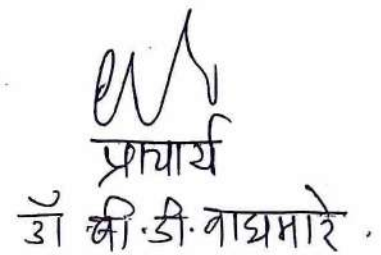 प्राचार्य
डॉ बी.डी.वाघमारे.